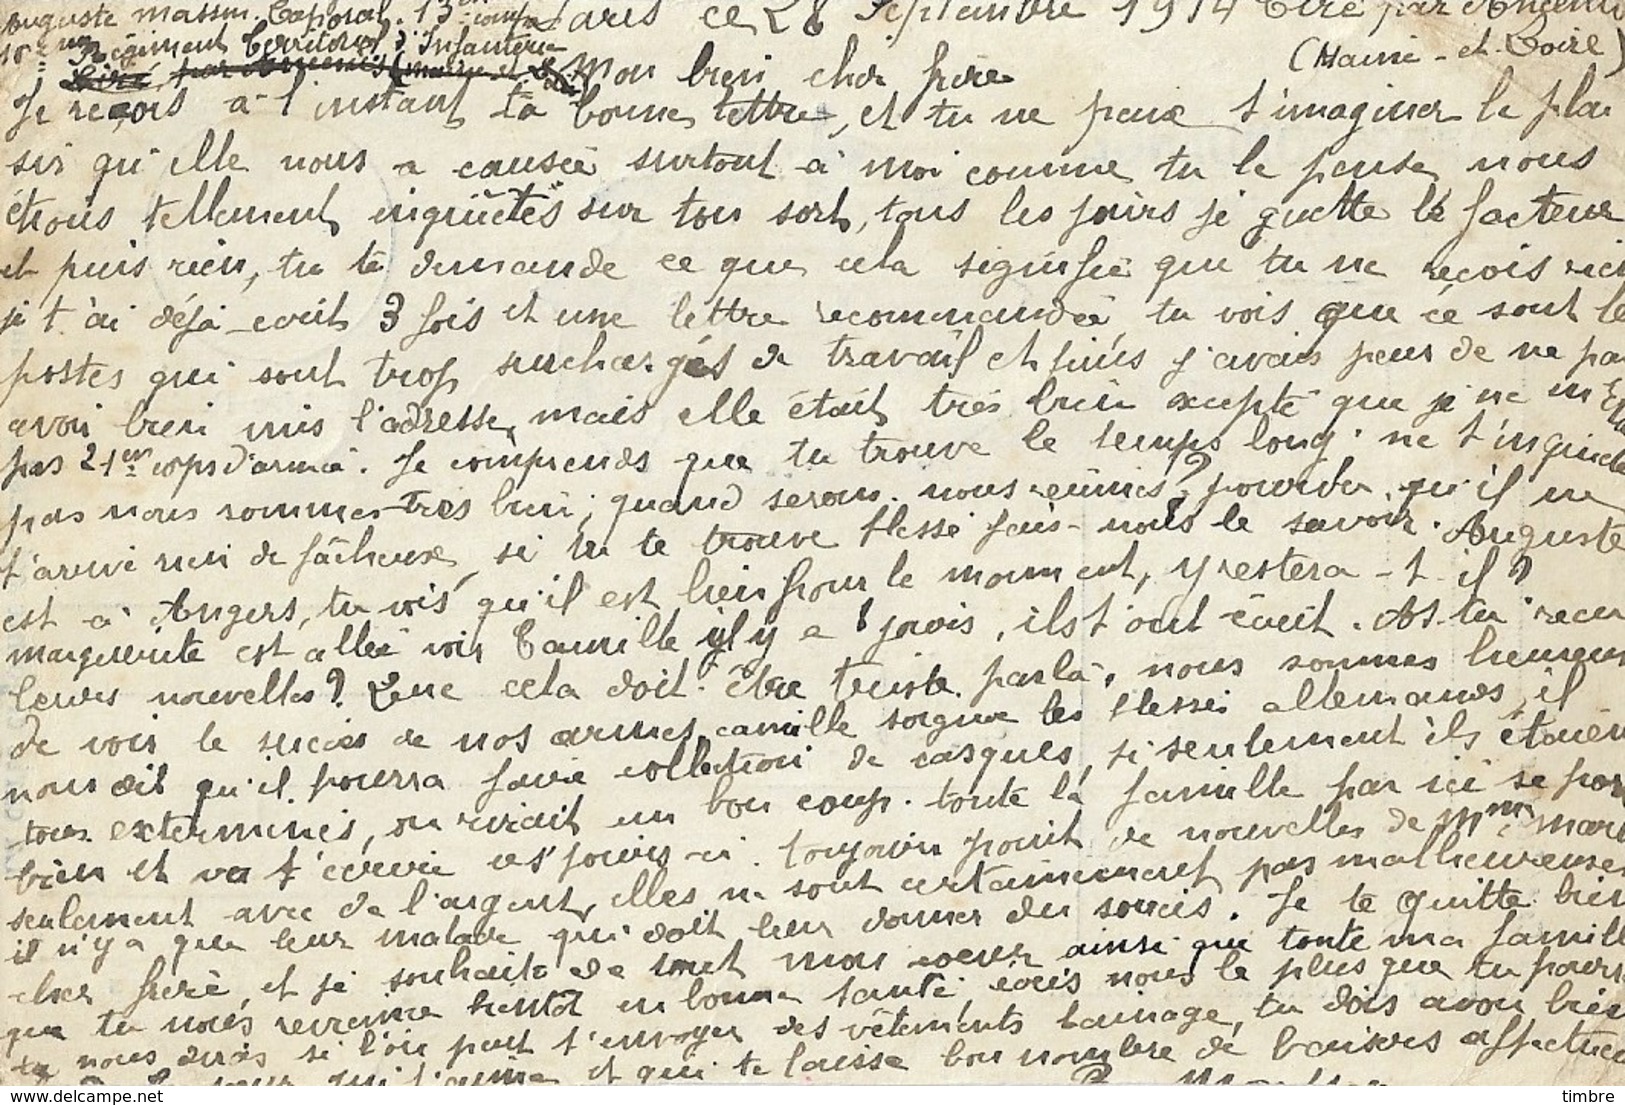 Auguste Massin. Caporal. 13em comp
Paris ce 28 Septembre 1914 Liré par Ancenis
Régiment Territorial d'Infanterie
(Maine-et-Loire)
Liré, par Ancenis (Maine et
Mon bien cher frère
Je reçois à l'instant ta bonne lettre, et tu ne peux t'imaginer le plai
sir qu'elle nous a causée surtout à moi comme tu le pense, nous
étions tellement inquiétés sur ton sort, tous les jours je guette le facteur
et puis rien, tu te demande ce que cela signifie que tu ne reçois rien
je t'ai déjà écrit 3 fois et une lettre recommandée, tu vois que ce sont les
postes qui sont trop surchargés de travail et puis j'avais peur de ne pas
avoir bien mis l'adresse, mais elle était très bien excepté que je ne
pas 21em corps d'armée. Je comprends que tu trouve le temps long. ne t'inquiete
pas nous sommes très bien; quand serons-nous réunis? pourvu qu'il ne
t'arrive rien de fâcheux, si tu te trouve blessé fais-nous le savoir. Auguste
est à Angers, tu vois qu'il est bien pour le moment, y restera-t-il?
marguerite est allée voir Camille il y a 8 jours, ils t'ont écrit. As-tu reçu
leurs nouvelles? Que cela doit être triste par là, nous sommes heureux
de voir le succès de nos armes, camille soigne les blessés allemands, il
nous dit qu'il pourra faire collection de casques, si seulement ils étaient
tous exterminés, on rirait un bon coup. toute la famille par ici se porte
bien et va t'écrire ces jours-ci. toujours point de nouvelles de Mme Marc
seulement avec de l'argent, elles ne sont certainement pas malheureuses
il n'y a que leur malade qui doit leur donner du soucis. Je te quitte bien
cher frère, et je souhaite de tout mon coeur ainsi que toute ma famille
que tu nous revienne bientôt en bonne santé, écris nous le plus que tu pourra
tu nous diras si l'on peut t'envoyer des vêtements lainage, tu dois avoir bien
qui t'aime et qui te laisse bon nombre de baisers affectueux
timbre